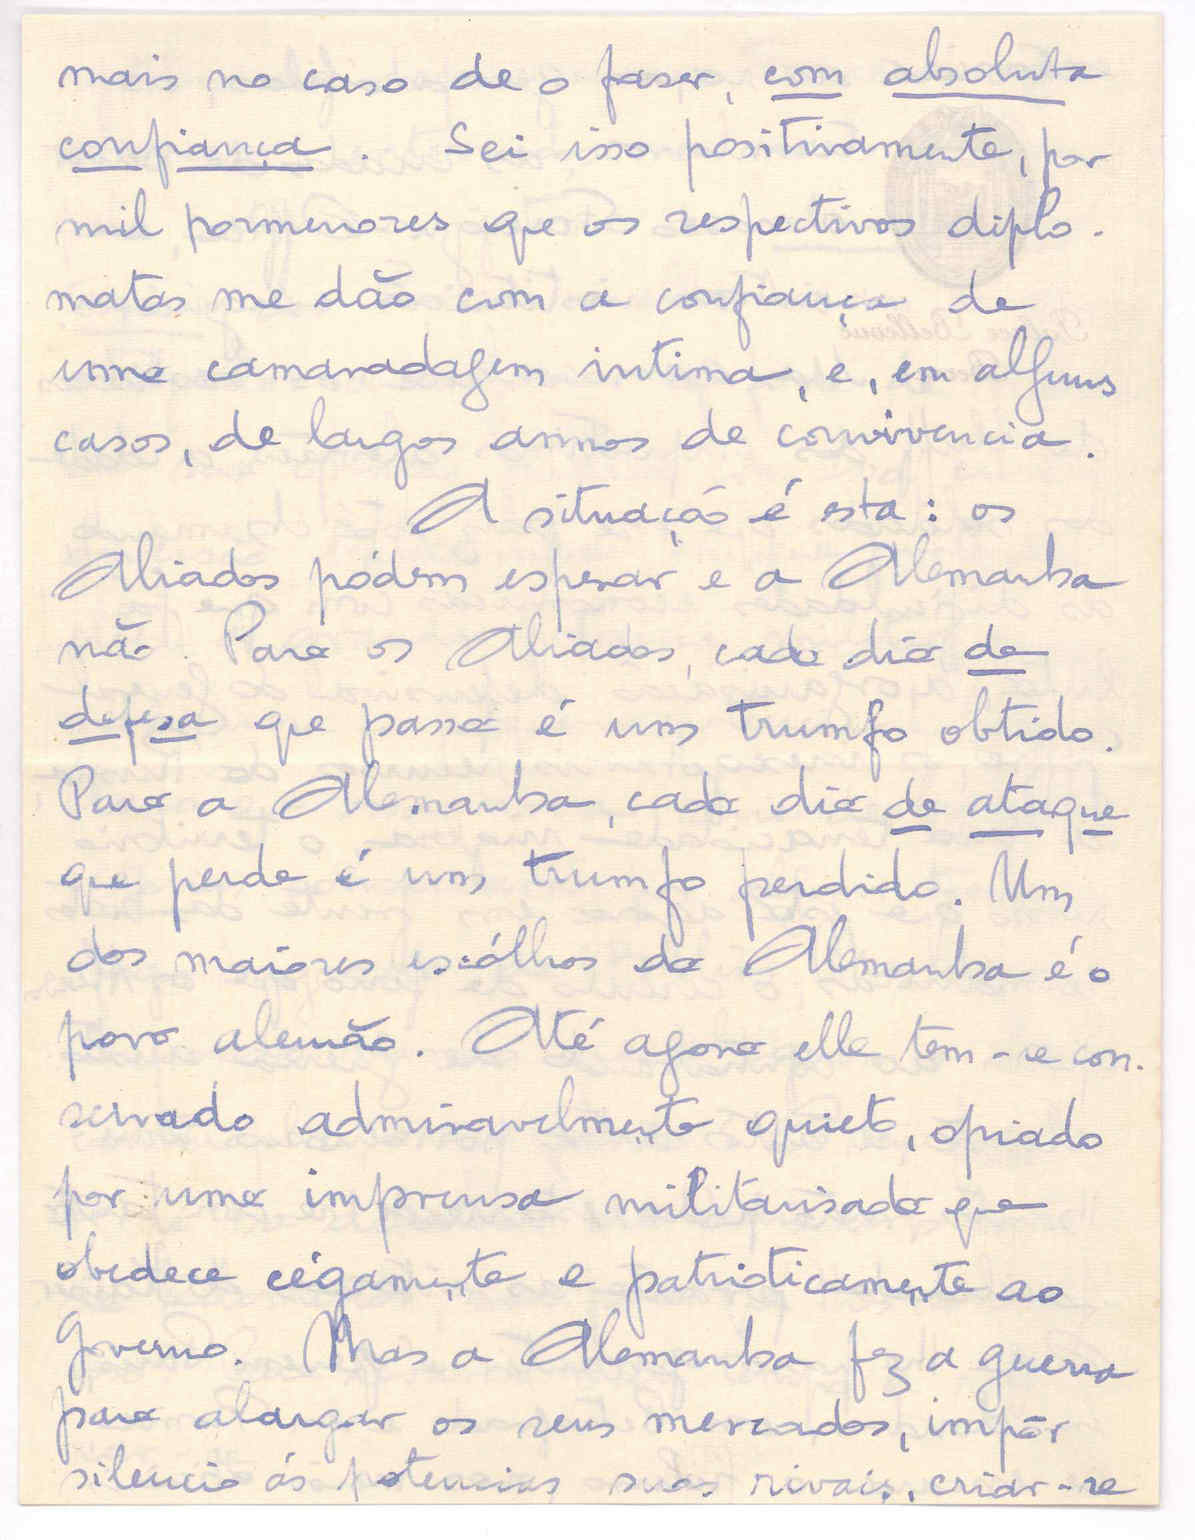 mais no caso de o faser, com absoluta
confiança. Sei isso positivamente, por
mil pormenores que os respectivos diplo-
matas me dão com a confiança de
uma camaradagem intima, e, em alguns
casos, de largos annos de convivencia.
A situação é esta: os
Aliados pódem esperar e a Alemanha
não. Para os Aliados, cada dia de
defesa que passa é um trumfo obtido.
Para a Alemanha, cada dia de ataque
que perde é um trumfo perdido. Um
dos maiores escólhos da Alemanha é o
povo alemão. Até agora elle tem-se con-
servado admiravelmente quieto, opiado
por uma imprensa militarisada que
obedece cégamente e patrioticamente ao
Governo. Mas a Alemanha fez a guerra
para alargar os seus mercados, impôr
silencio ás potencias suas rivais, criar-se